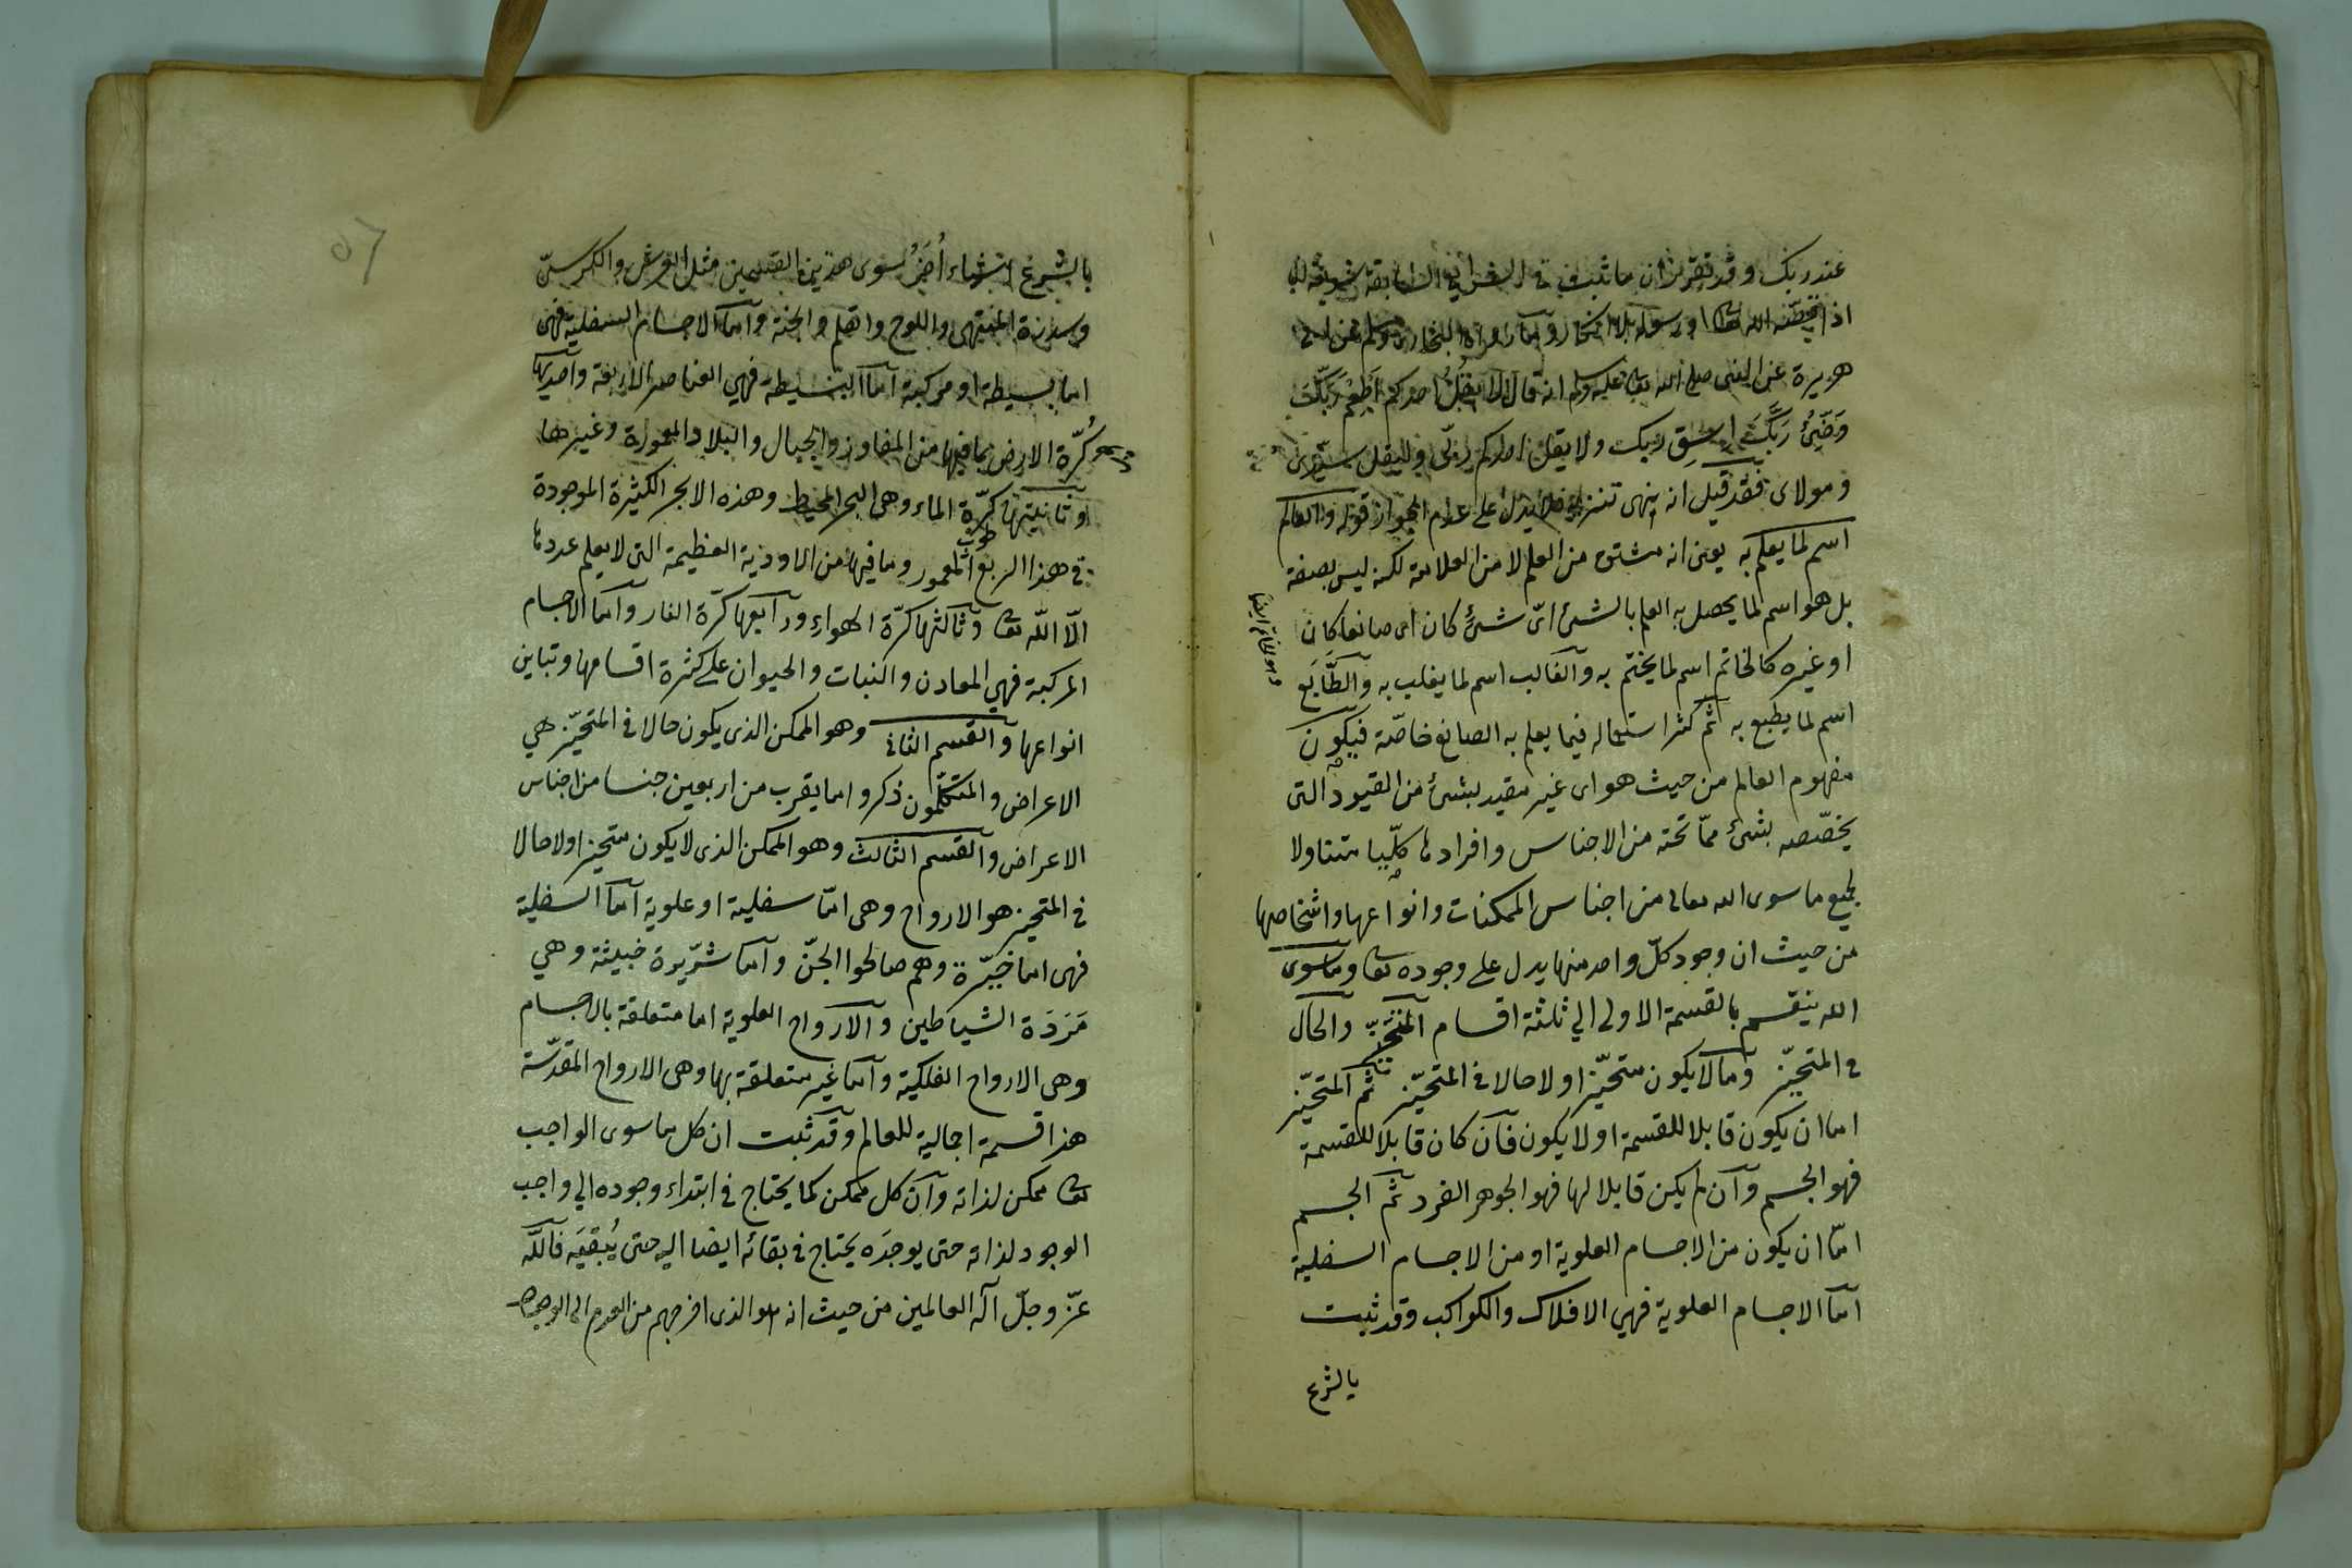 عند ربك وقد تقرر ان ما ثبت فى الشرايع السابقة شريعة لنا
اذا قصه الله تعالى او رسوله بلا انكار وما رواه البخارى ومسلم عن ابى
هريرة عن النبى صلى الله تعالى عليه وسلم انه قال لا يقل احدكم اَطعِم رَبَّكَ
وَضِّئ رَبَّكَ اسق ربك ولا يقل احدكم ربّى وليقل سيّدى
ومولاى فقد قيل انه نهى تنزيه فلا يدل على عدم الجواز قوله والعالم
اسم لما يعلم به يعنى انه مشتق من العلم لا من العلامة لكنه ليس بصفة
بل هو اسم لما يحصل به العلم بالشئ اىّ شئٍ كان اى صانعا كان
او غيره كالخاتم اسم لما يختم به والقالب اسم لما يقلب به والطَّابَع
وهو الخاتم ايضا
اسم لما يطبع به ثم كثر استعماله فيما يعلم به الصانع خاصّة فيكون
مفهوم العالم من حيث هو اى غير مقيد بشئ من القيود التى
يخصّصه بشئ ممّا تحته من الاجناس وافرادها كلّيا متناولا
لجميع ما سوى الله تعالى من اجناس الممكنات وانواعها واشخاصها
من حيث ان وجود كلّ واحد منها يدل على وجوده تعا وما سوى
الله ينقسم بالقسمة الاولى الي ثلثة اقسام المتحيّز والحال
فى المتحيّز وما لا يكون متحيّزا ولا حالا فى المتحيّز ثم المتحيّز
اما ان يكون قابلا للقسمة او لا يكون فان كان قابلا للقسمة
فهو الجسم وان لم يكن قابلا لها فهو الجوهر الفرد ثم الجسم
امّا ان يكون من الاجسام العلوية او من الاجسام السفلية
اما الاجسام العلوية فهي الافلاك والكواكب وقد ثبت
بالشرع
بالشرع اشياء أُخَرُ سوى هذين القسمين مثل العرش والكرسىّ
وسدرة المنتهى واللوح والقلم والجنة واما الاجسام السفلية فهى
اما بسيطة او مركبة اما البسيطة فهي العناصر الاربعة واحديها
كُرّة الارض بما فيها من المفاوز والجبال والبلاد المعمورة وغيرها
وثانيتها كرّة الماء وهى البحر المحيط وهذه الابحر الكثيرة الموجودة
فى هذا الربع المعمور وما فيها من الاودية العظيمة التى لا يعلم عددها
الّا اللّه تعا وثالثها كرّة الهواء ورابعها كرّة النار واما الاجسام
المركبة فهي المعادن والنبات والحيوان على كثرة اقسامها وتباين
انواعها والقسم الثانى وهو الممكن الذى يكون حالا فى المتحيّز هي
الاعراض والمتكلّمون ذكروا ما يقرب من اربعين جنسا من اجناس
الاعراض والقسم الثالث وهو الممكن الذى لا يكون متحيزا ولا حالا
فى المتحيز هو الارواح وهى امّا سفلية او علوية اما السفلية
فهى اما خيّرة وهم صالحوا الجنّ واما شرّيرة خبيثة وهي
مَرَدَة الشياطين والارواح العلوية اما متعلقة بالاجسام
وهى الارواح الفلكية واما غير متعلقة بها وهى الارواح المقدّسة
هذا قسمة اجمالية للعالم وقد ثبت ان كل ما سوى الواجب
تعا ممكن لذاته وان كل ممكن كما يحتاج فى ابتداء وجوده الي واجب
الوجود لذاته حتى يوجدَه يحتاج فى بقائه ايضا اليه حتى يُبقيَه فاللّه
عزّ وجلّ اله العالمين من حيث انه هو الذى اخرجهم من العدم الى الوجود